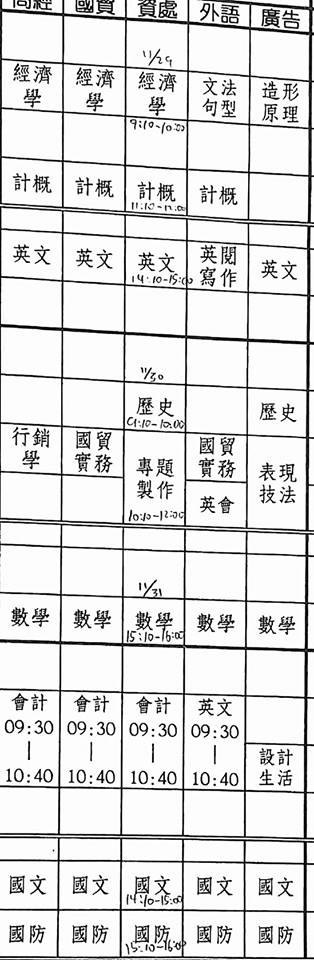 商經 國貿 資處 外語 廣告
11/29
經濟學 經濟學 經濟學 文法句型 造形原理
9:10-10:00
計概 計概 計概 計概
11:10-12:00
英文 英文 英文 英閱寫作 英文
14:10-15:00
11/30
歷史 歷史
09:10-10:00
行銷學 國貿實務 專題製作 國貿實務 表現技法
英會
10:10-12:00
11/31
數學 數學 數學 數學 數學
15:10-16:00
會計 會計 會計 英文
09:30 09:30 09:30 09:30
| | | |
10:40 10:40 10:40 10:40 設計生活
國文 國文 國文 國文 國文
14:10-15:00
國防 國防 國防 國防 國防
15:10-16:00